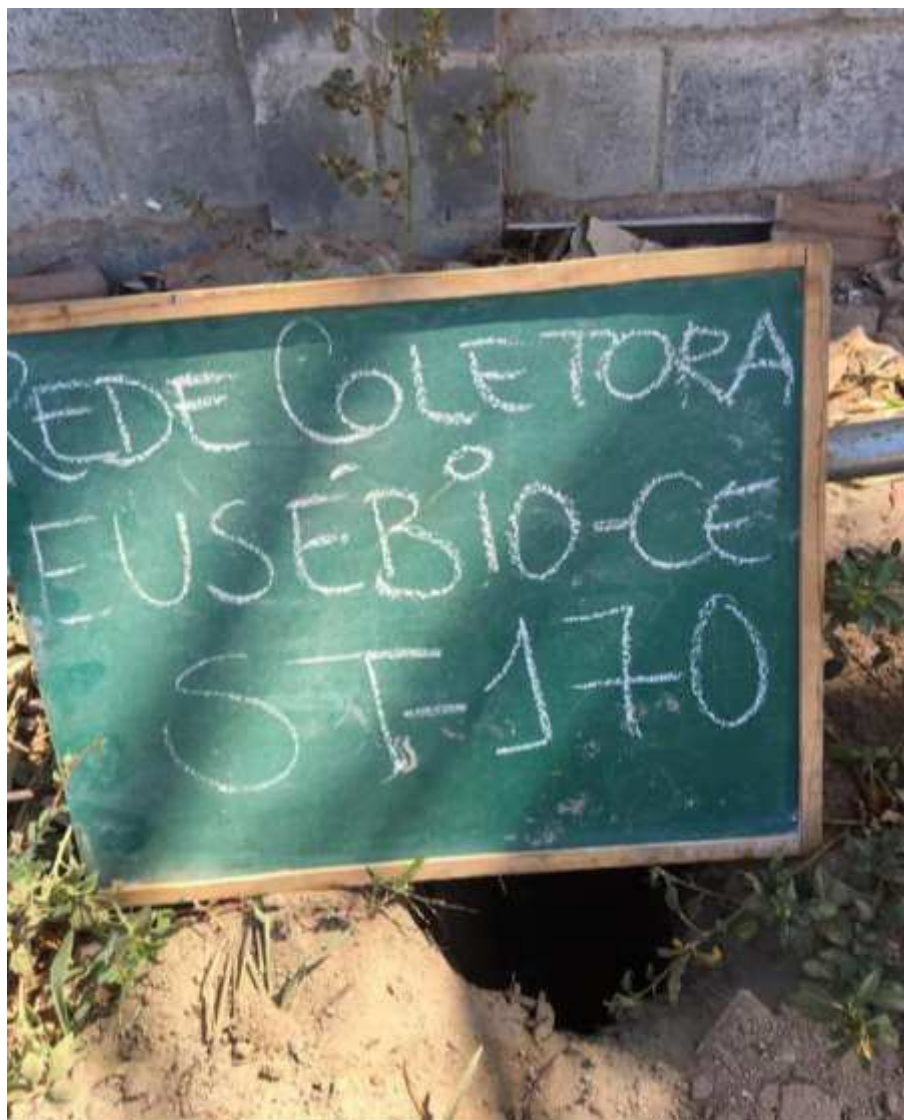 REDE COLETORA
EUSÉBIO-CE
ST-170